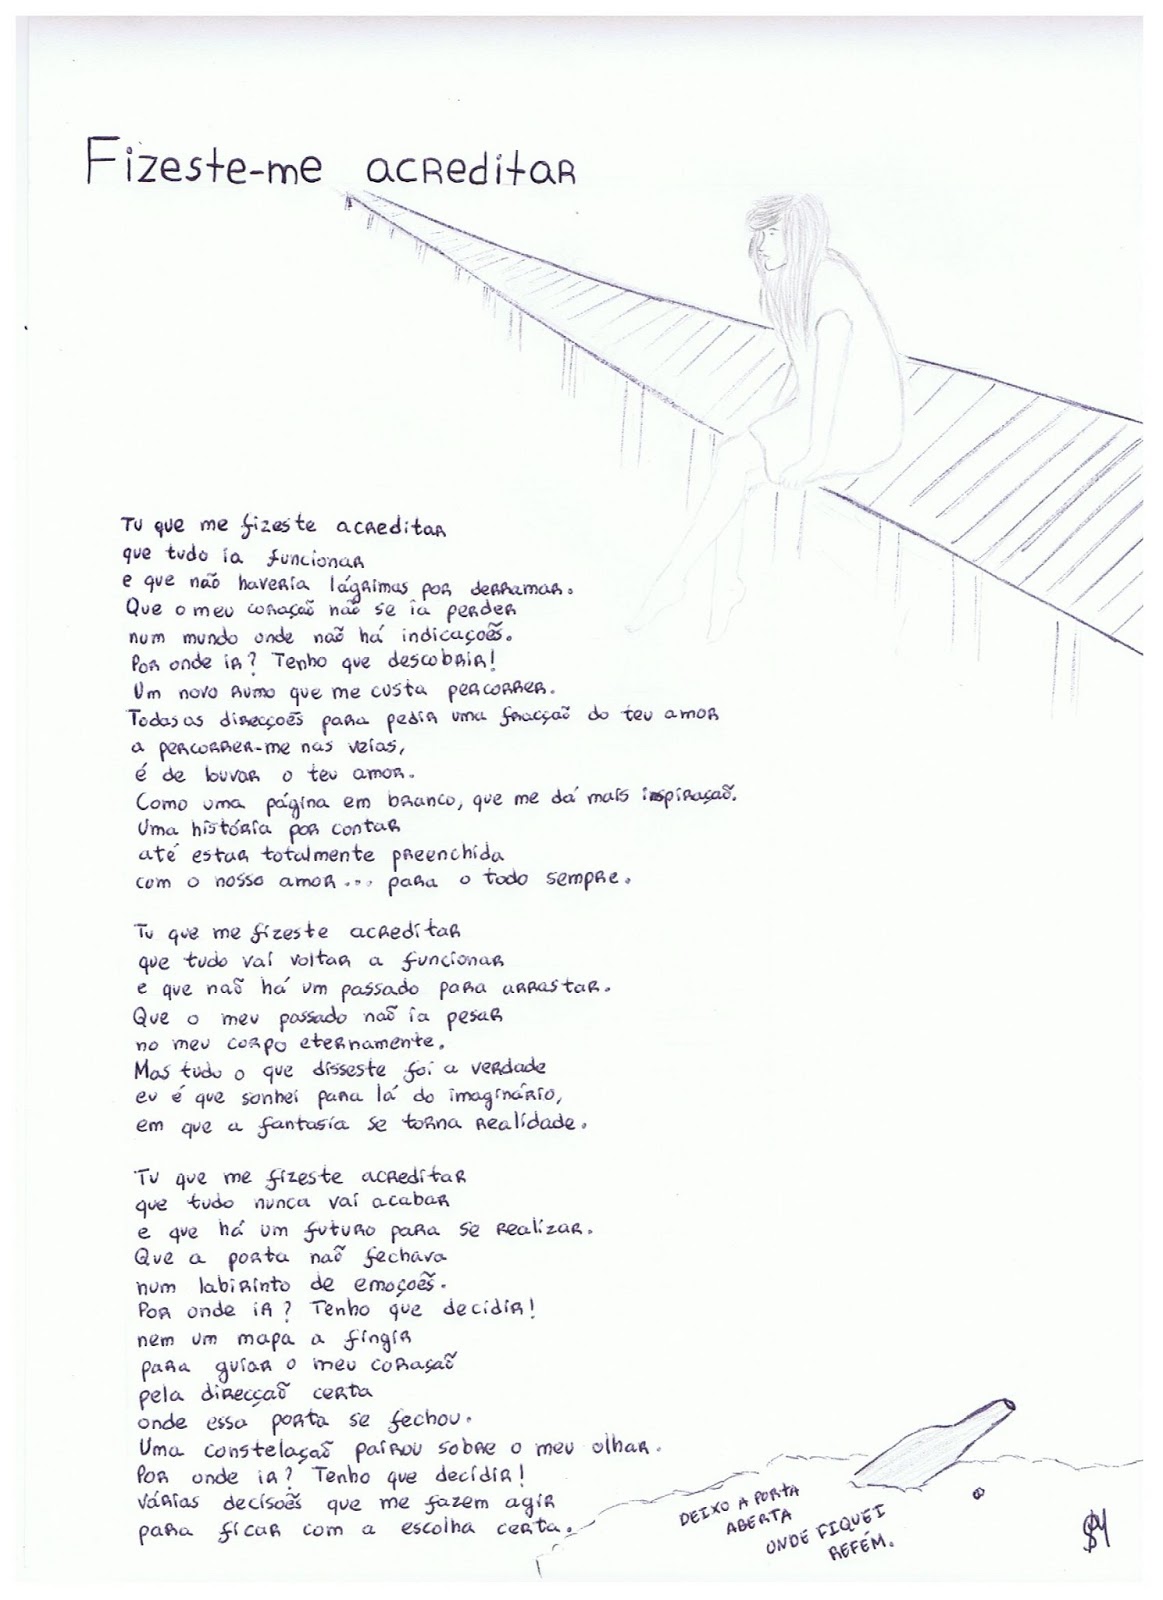 Fizeste-me acreditar
Tu que me fizeste acreditar
que tudo ia funcionar
e que não haveria lágrimas por derramar.
Que o meu coração não se ia perder
num mundo onde não há indicações.
Por onde ir? Tenho que descobrir!
Um novo rumo que me custa percorrer.
Todas as direcções para pedir uma fracção do teu amor
a percorrer-me nas veias,
é de louvar o teu amor.
Como uma página em branco, que me dá mais inspiração.
Uma história por contar
até estar totalmente preenchida
com o nosso amor... para o todo sempre.

Tu que me fizeste acreditar
que tudo vai voltar a funcionar
e que não há um passado para arrastar.
Que o meu passado não ia pesar
no meu corpo eternamente.
Mas tudo o que disseste foi a verdade
eu é que sonhei para lá do imaginário,
em que a fantasia se torna realidade.

Tu que me fizeste acreditar
que tudo nunca vai acabar
e que há um futuro para se realizar.
Que a porta não fechava
num labirinto de emoções.
Por onde ir? Tenho que decidir!
nem um mapa a fingir
para guiar o meu coração
pela direcção certa
onde essa porta se fechou.
Uma constelação pairou sobre o meu olhar.
Por onde ir? Tenho que decidir!
várias decisões que me fazem agir
para ficar com a escolha certa.
DEIXO A PORTA
ABERTA
ONDE FIQUEI
REFÉM.